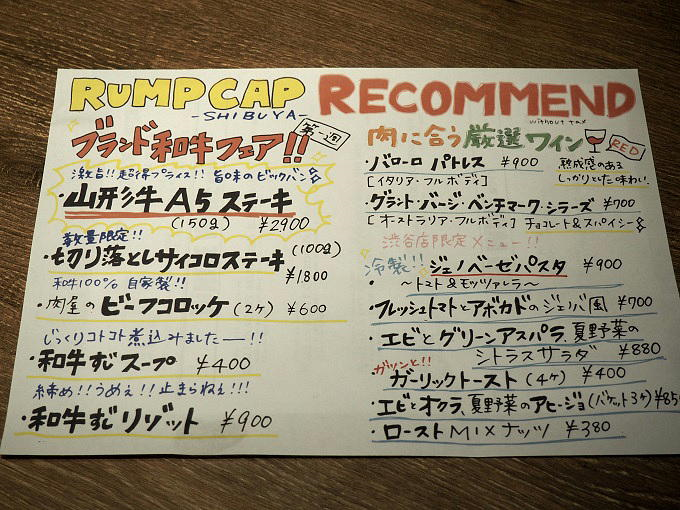 RUMP CAP RECOMMEND
-SHIBUYA-
without tax
ブランド和牛フェア!!
第一週
激旨!!超お得プライス!!旨味のビックバン
・山形牛A5ステーキ
(150g) ¥2900
数量限定!!
・切り落としサイコロステーキ(100g)
¥1,800
和牛100% 自家製!!
・肉屋のビーフコロッケ(2ヶ) ¥600
じっくりコトコト煮込みましたー!!
・和牛すじスープ ¥400
締め!!うめぇ!!止まらねぇ!!!
・和牛すじリゾット ¥900
肉に合う厳選ワイン
RED
・バローロ パトレス ¥900
[イタリア・フルボディ]
熟成感のある
しっかりとした味わい.
・グラント・バージ・ベンチマーク・シラーズ ¥700
[オーストラリア・フルボディ] チョコレート&スパイシー
渋谷店限定メニュー!!
冷製!!ジェノベーゼパスタ ¥900
・〜トマト&モッツァレラ〜
・フレッシュトマトとアボカドのジェノバ風 ¥700
・エビとグリーンアスパラ、夏野菜の
シトラスサラダ ¥880
ガツンと!!
ガーリックトースト(4ヶ) ¥400
・エビとオクラ、夏野菜のアヒージョ(バケット3ヶ)¥85
・ローストMIXナッツ ¥380